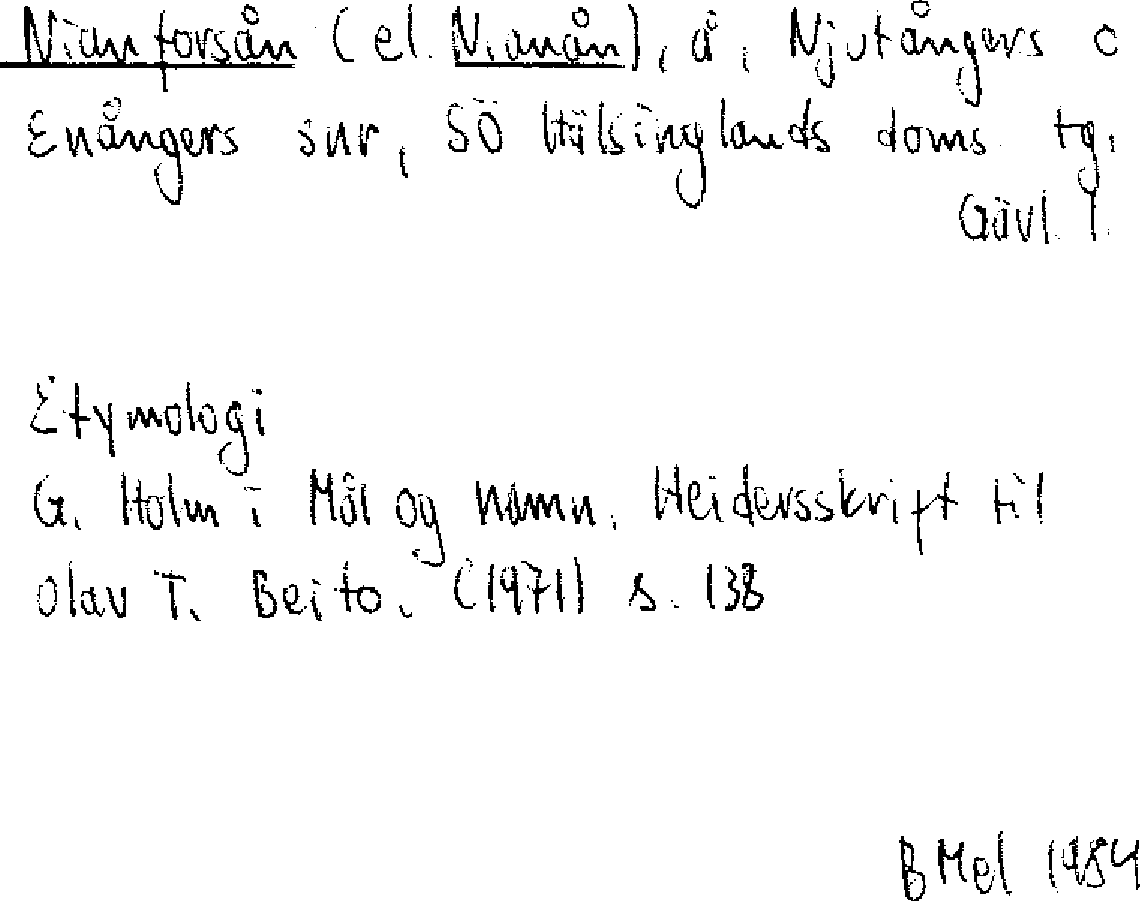 Nianforsån (el. Nianån), å, Njutångers o
Enångers snr, SÖ Hälsinglands doms. tg.
Gävl. l.
Etymologi
G. Holm i Mål og namn. Heidersskrift til
Olav T. Beito. (1971) s. 138
B Mel 1984